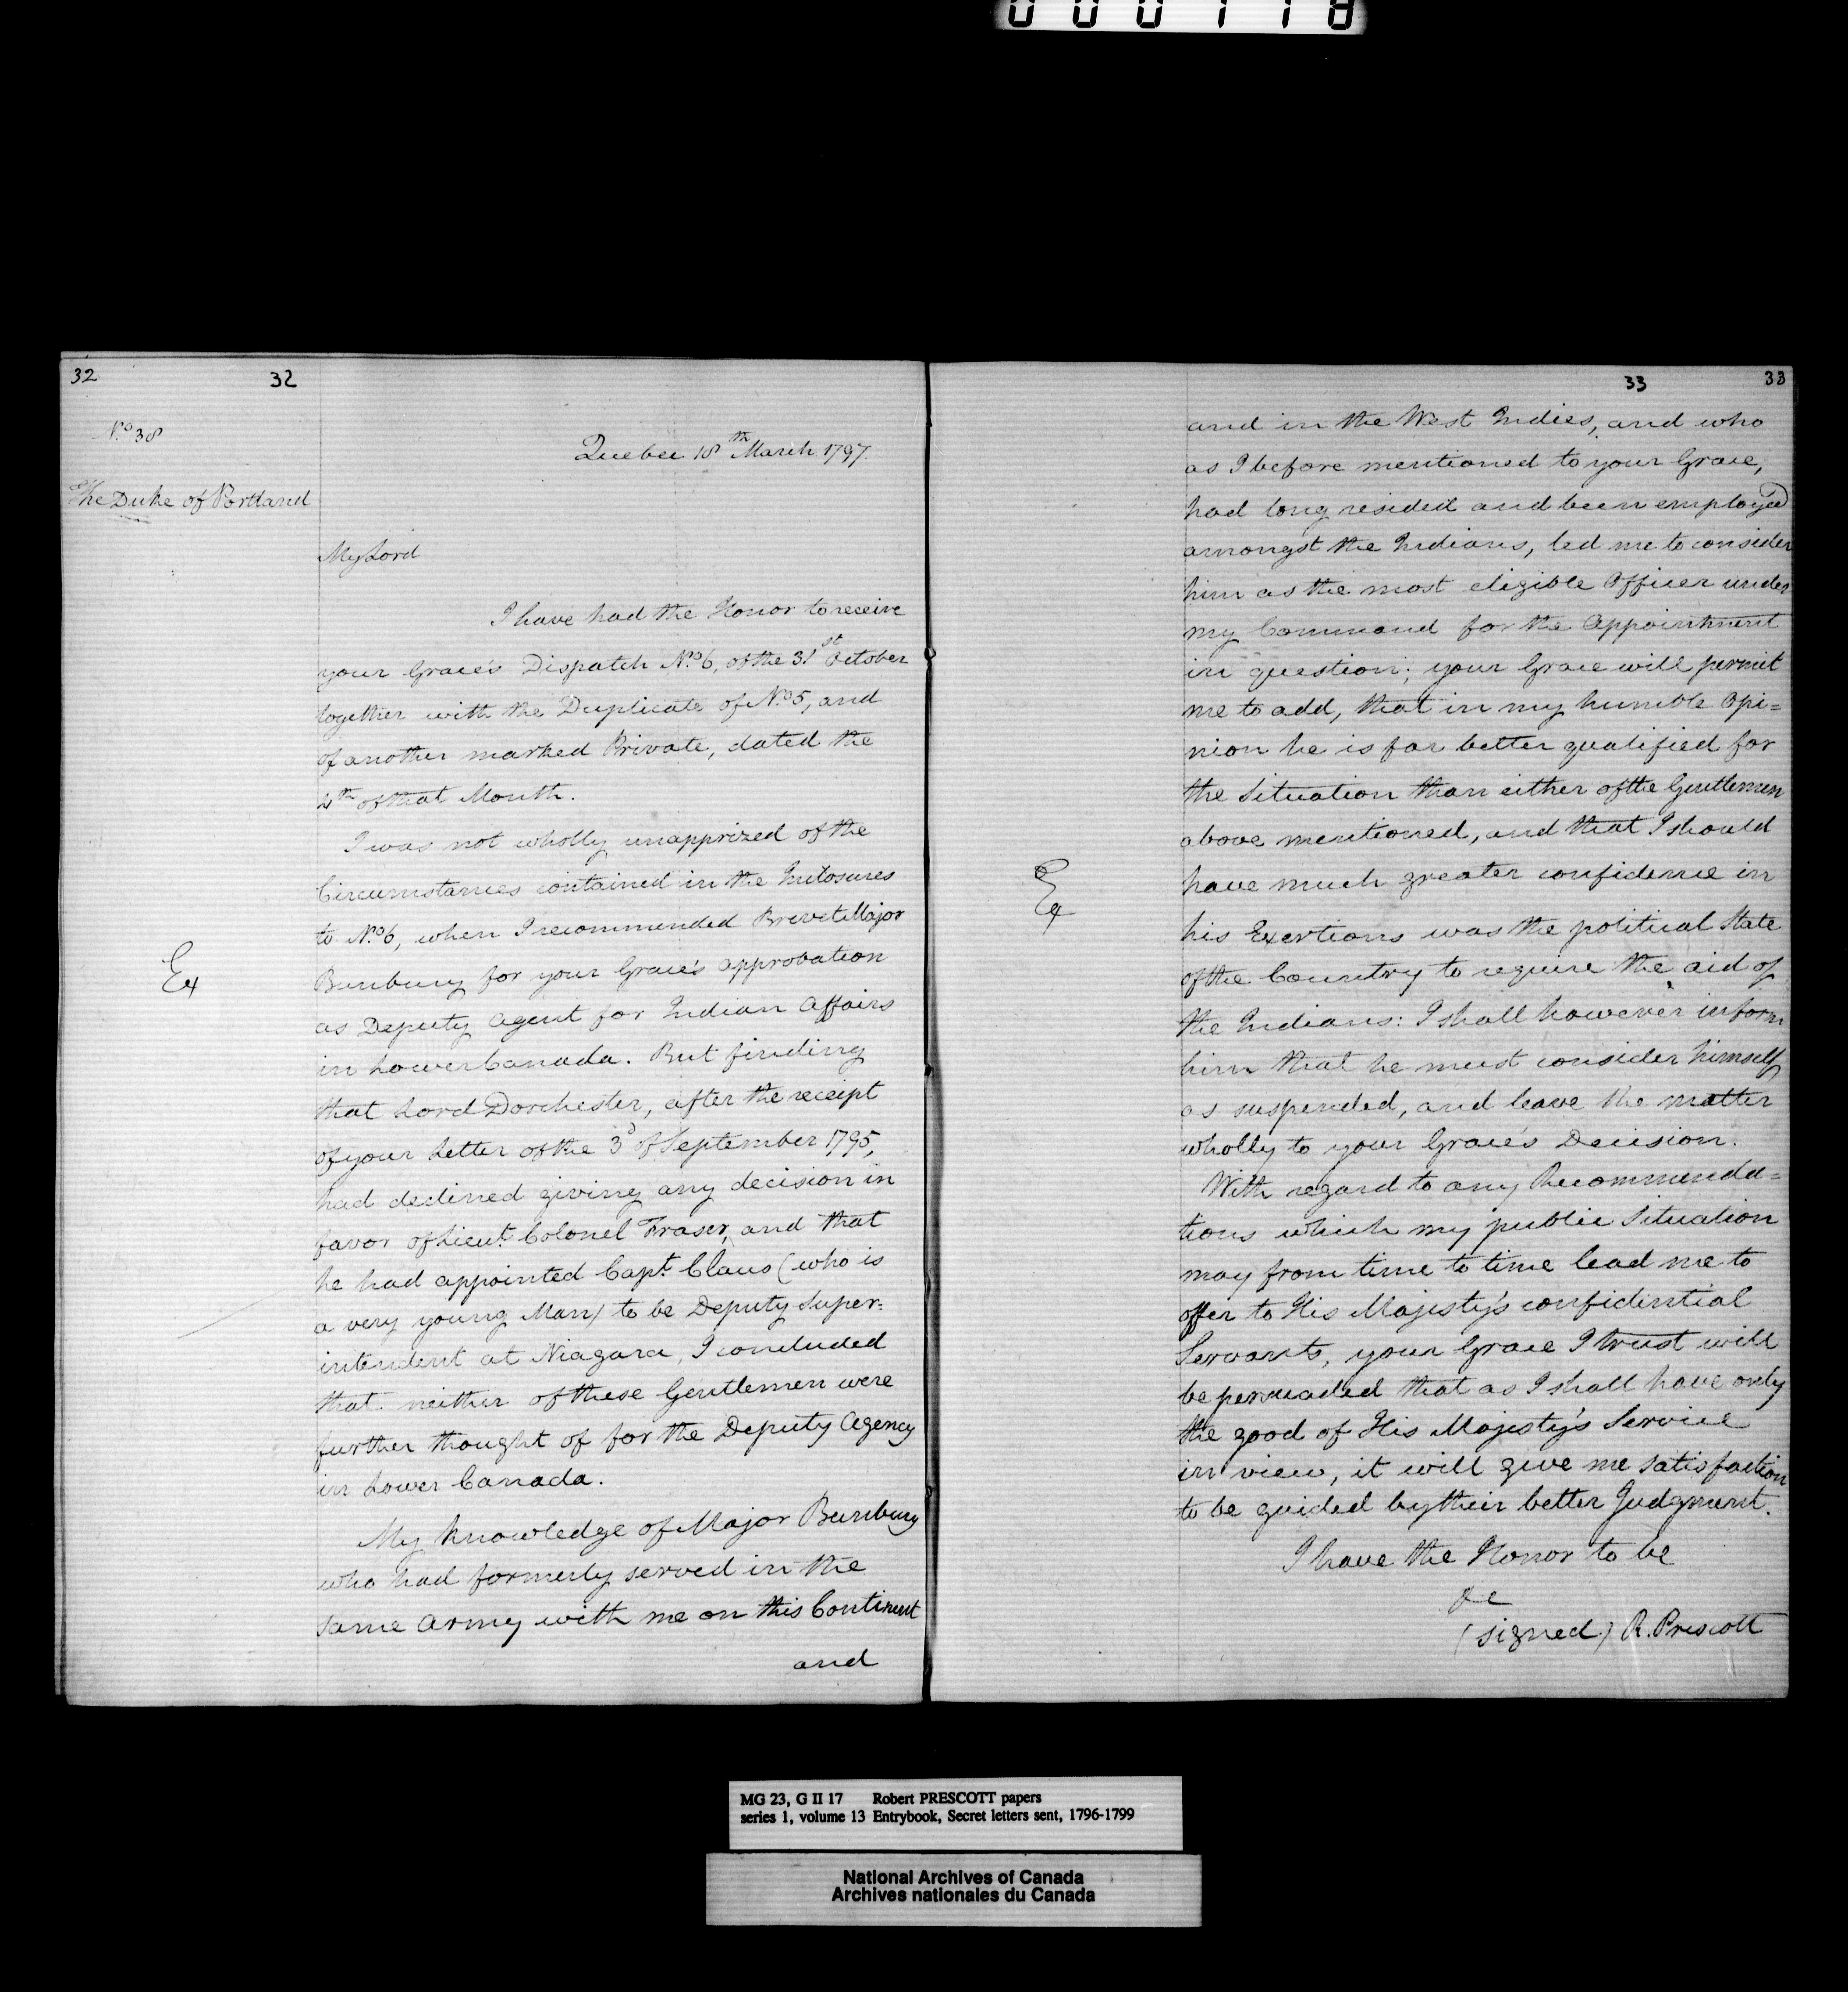 000118
32
32
No. 38
Quebec 18th March 1797.
The Duke of Portland
My Lord
I have had the Honor to receive
your Grace's Dispatch No. 6, of the 31st October
together with the Duplicate of No. 5, and
of another marked Private, dated the
4th of that Month.
I was not wholly unapprized of the
Circumstances contained in the Inclosures
to No. 6, when I recommended Brevet Major
Ex
Bunbury for your Grace's approbation
as Deputy Agent for Indian Affairs
in Lower Canada. But finding
that Lord Dorchester, after the receipt
of your Letter of the 3d of September 1795,
had declined giving any decision in
favor of Lieut. Colonel Fraser, and that
he had appointed Capt. Claus (who is
a very young Man) to be Deputy Super=
intendent at Niagara, I concluded
that neither of these Gentlemen were
further thought of for the Deputy Agency
in Lower Canada.
My knowledge of Major Bunbury
who had formerly served in the
same Army with me on this Continent
and
33
33
and in the West Indies, and who
as I before mentioned to your Grace,
had long resided and been employed
amongst the Indians, led me to consider
him as the most eligible Officer under
my Command for the Appointment
in question; your Grace will permit
me to add, that in my humble Opi=
nion he is far better qualified for
the Situation than either of the Gentlemen
above mentioned, and that I should
Ex
have much greater confidence in
his Exertions was the political State
of the Country to require the aid of
the Indians: I shall however inform
him that he must consider himself
as suspended, and leave the matter
wholly to your Grace's Decision.
With regard to any Recommenda=
tions which my public Situation
may from time to time lead me to
offer to His Majesty's confidential
Servants, your Grace I trust will
be persuaded that as I shall have only
the good of His Majesty's Service
in view, it will give me satisfaction
to be guided by their better Judgment.
I have the Honor to be
&c
(signed) R. Prescott
MG 23, G II 17 Robert PRESCOTT papers
series 1, volume 13 Entrybook, Secret letters sent, 1796-1799
National Archives of Canada
Archives nationales du Canada